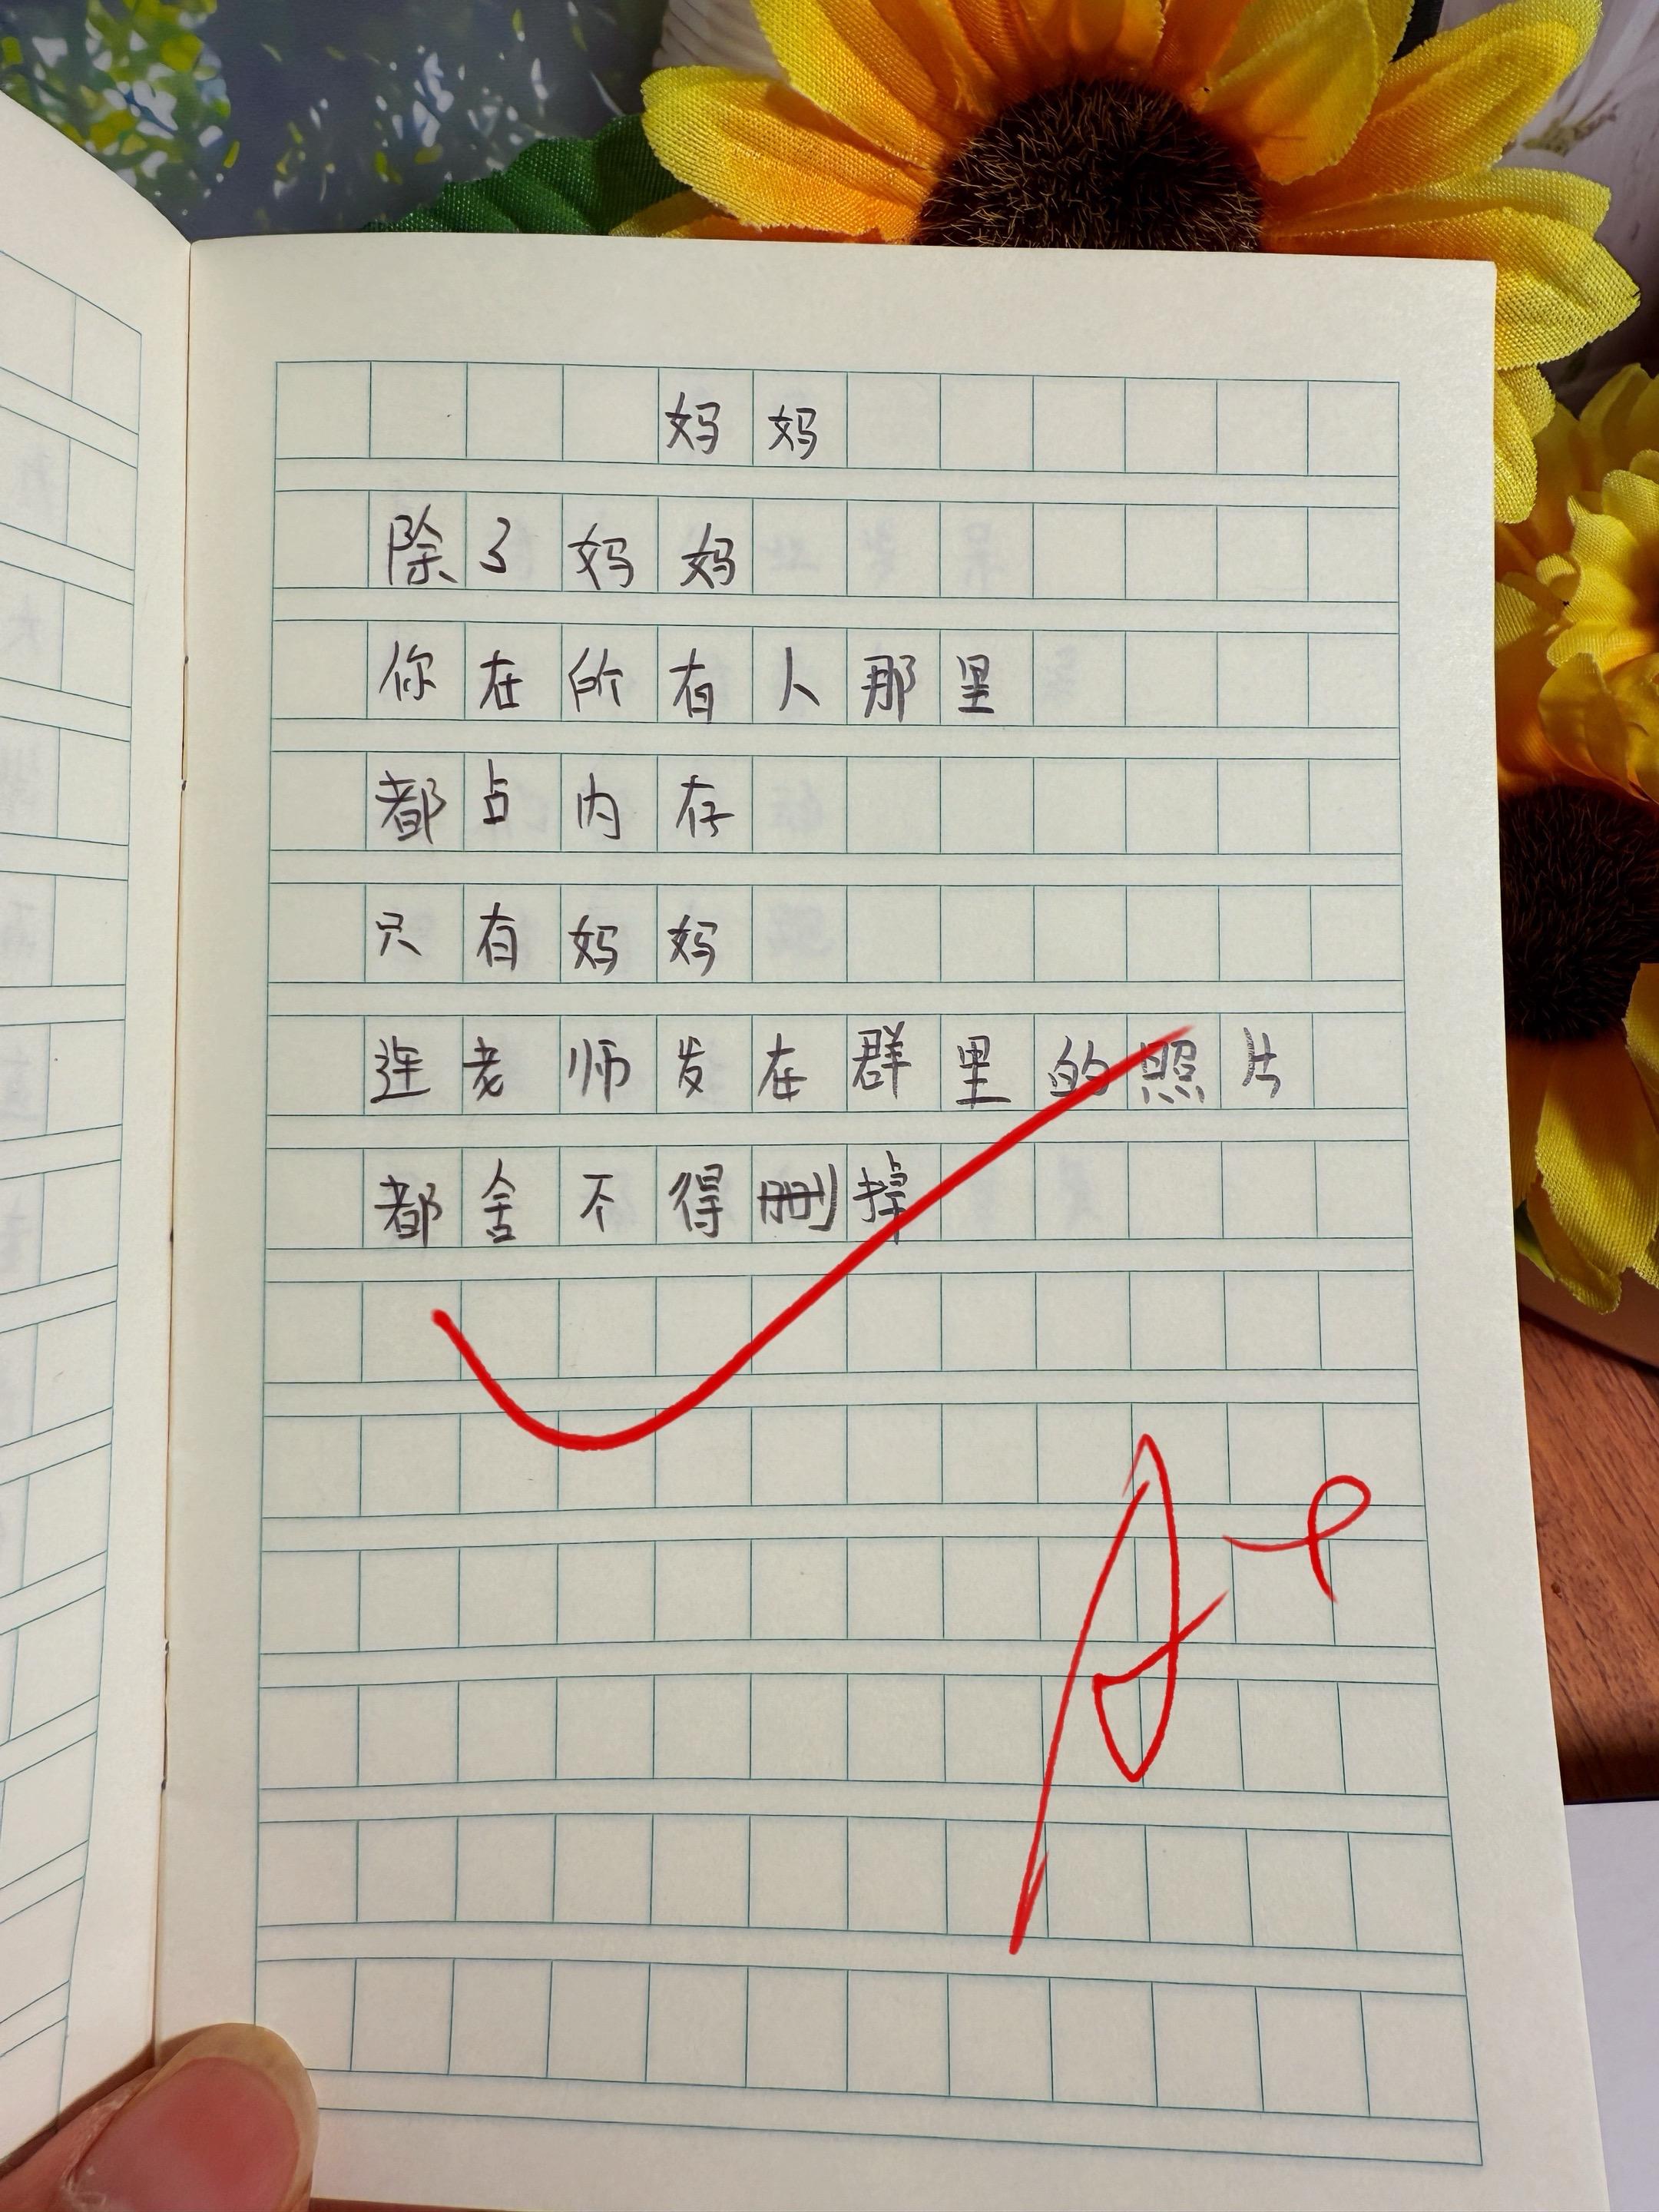 妈妈
除了妈妈
你在所有人那里
都占内存
只有妈妈
连老师发在群里的照片
都舍不得删掉
A+